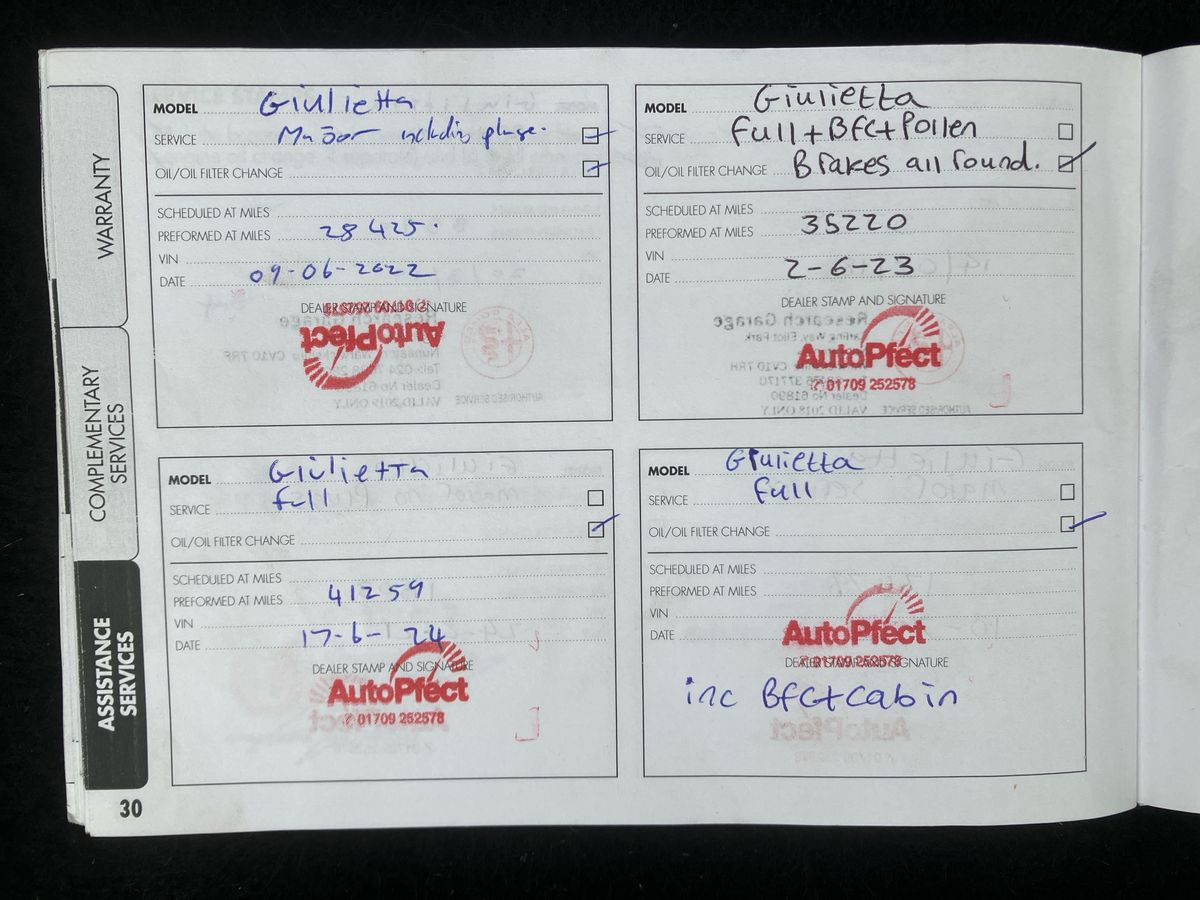 WARRANTY
COMPLEMENTARY
SERVICES
ASSISTANCE
SERVICES
MODEL Giulietta
SERVICE Major including plugs.
OIL/OIL FILTER CHANGE
SCHEDULED AT MILES
PREFORMED AT MILES 28425.
VIN
DATE 09-06-2022
DEALER STAMP AND SIGNATURE
AutoPfect
MODEL Giulietta
SERVICE Full+BFC+Pollen
OIL/OIL FILTER CHANGE Brakes all round.
SCHEDULED AT MILES
PREFORMED AT MILES 35220
VIN
DATE 2-6-23
DEALER STAMP AND SIGNATURE
Research Garage
AutoPfect
01709 252578
Dealer No 61890
VALID 2018 ONLY
AUTHORISED SERVICE
MODEL Giulietta
SERVICE full
OIL/OIL FILTER CHANGE
SCHEDULED AT MILES
PREFORMED AT MILES 41259
VIN
DATE 17-6-24
DEALER STAMP AND SIGNATURE
AutoPfect
01709 252578
MODEL Giulietta
SERVICE Full
OIL/OIL FILTER CHANGE
SCHEDULED AT MILES
PREFORMED AT MILES
VIN
DATE
AutoPfect
DEALER STAMP AND SIGNATURE
01709 252578
inc BFC+cabin
30